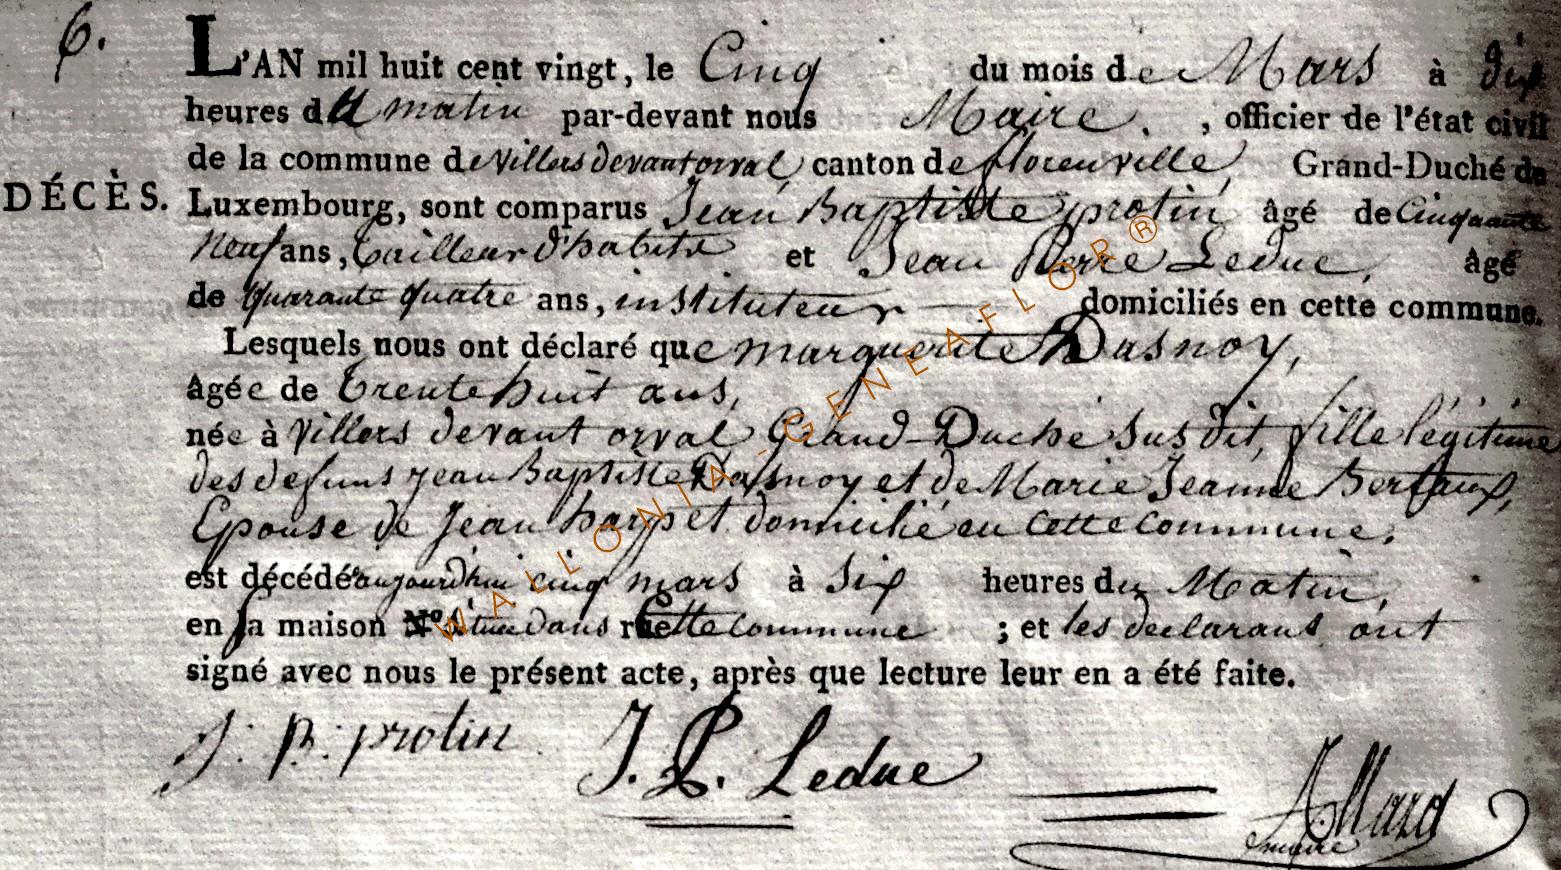 6.
L'AN mil huit cent vingt, le Cinq du mois de Mars à dix
heures du matin par-devant nous Maire. , officier de l'état civil
de la commune de villers devant orval, canton de florenville, Grand-Duché de
DÉCÈS. Luxembourg, sont comparus Jean Baptiste protin âgé de Cinquante
Neuf ans, tailleur d'habits et Jean Pierre Leduc, âgé
de quarante quatre ans, instituteur domiciliés en cette commune.
Lesquels nous ont déclaré que marguerite Dasnoy,
âgée de trente huit ans,
née à Villers devant orval Grand-Duché susdit, fille légitime
des defuns jean Baptiste Dasnoy et de Marie Jeanne Bertaux,
Epouse de Jean domicilié en cette commune.
est décédée aujourdhui cinq mars à six heures du Matin,
en sa maison N° située dans rue cette commune ; et les declarans ont
signé avec nous le présent acte, après que lecture leur en a été faite.
J. B. protin J. P. Leduc Allard
maire
WALLONIA-GENEAFLOR®